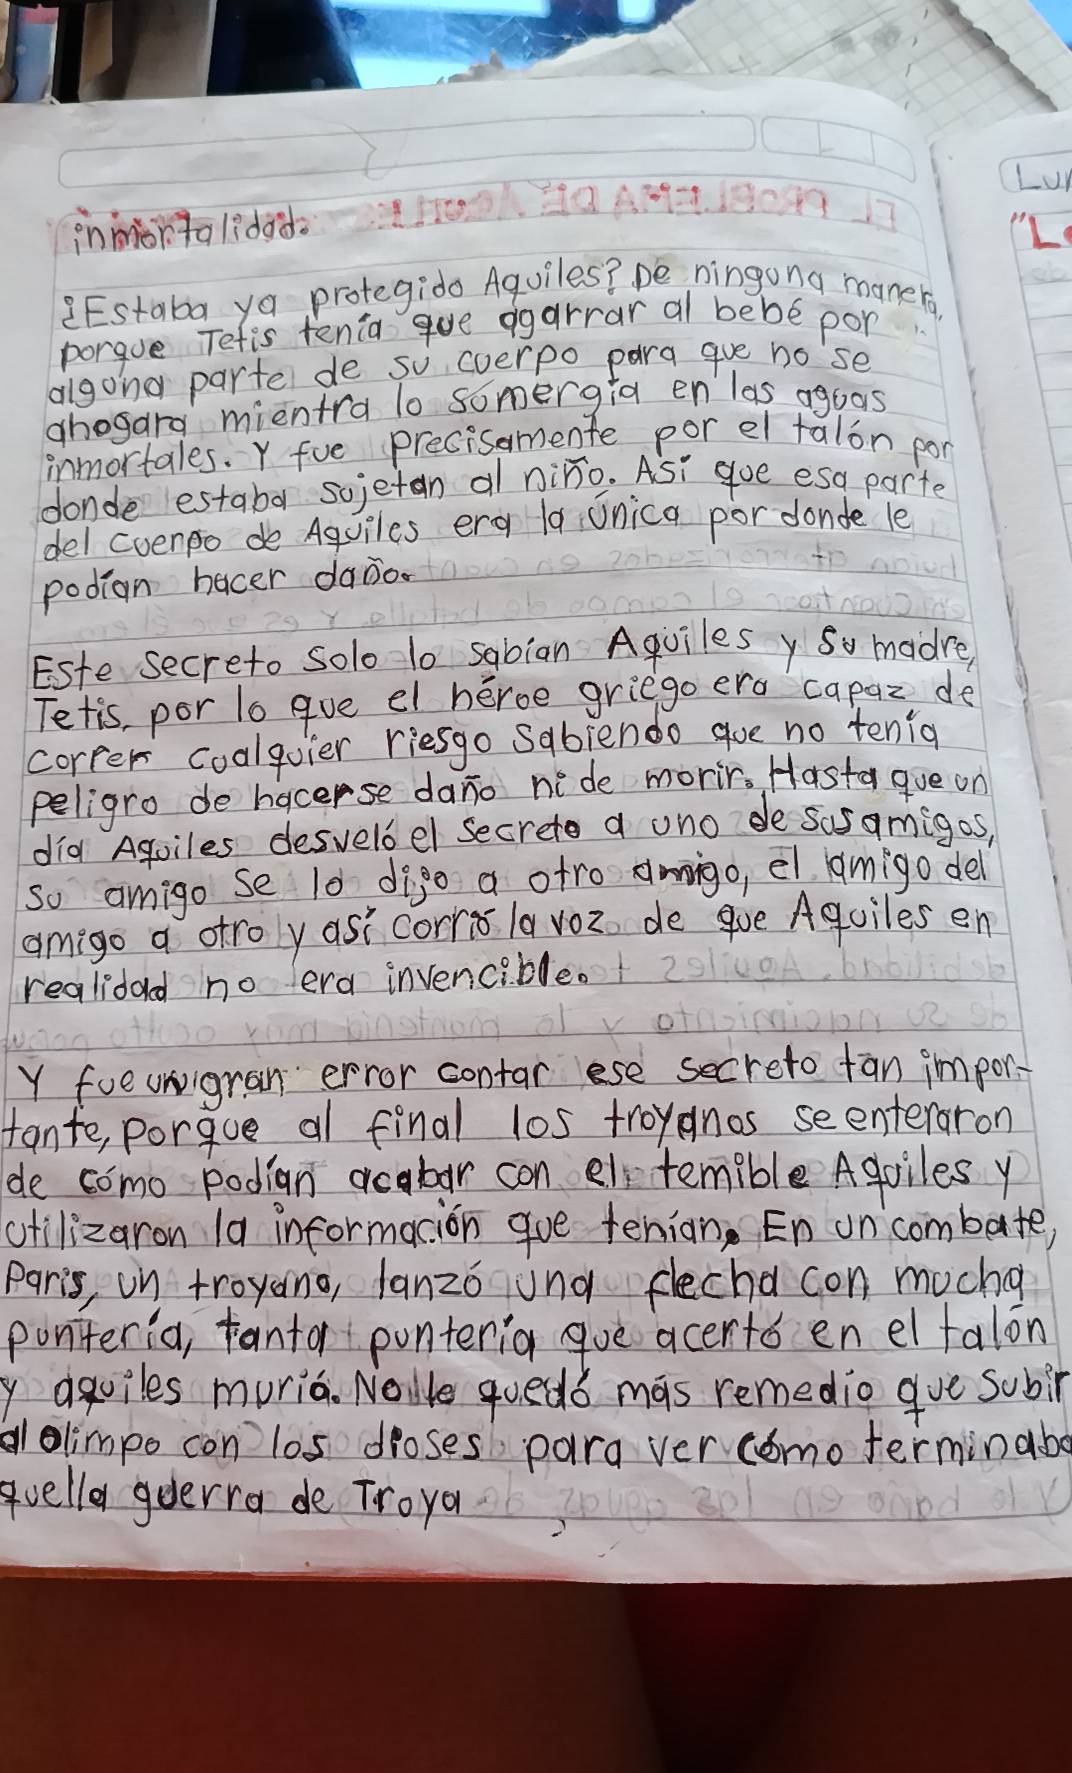 inmortalidad.
¿Estaba ya protegido Aquiles? De ninguna manera,
porque Tetis tenía que agarrar al bebé por
alguna parte de su cuerpo para que no se
ahogara mientra lo somergia en las aguas
inmortales. Y fue precisamente por el talón por
donde estaba sujetan al niño. Así que esa parte
del cuerpo de Aquiles era la única por donde le
podían hacer daño.
Este secreto solo lo sabian Aquiles y su madre,
Tetis, por lo que el héroe griego era capaz de
correr cualquier riesgo sabiendo que no tenía
peligro de hacerse daño ni de morir. Hasta que un
día Aquiles desveló el secreto a uno de sus amigos,
su amigo se lo dijo a otro amigo, el amigo del
amigo a otro y así corrió la voz de que Aquiles en
realidad no era invencible.
Y fue un gran error contar ese secreto tan impor-
tante, porque al final los troyanos se enteraron
de cómo podían acabar con el temible Aquiles y
utilizaron la información que tenían. En un combate,
Paris, un troyano, lanzó una flecha con mucha
puntería, tanta puntería que acertó en el talón
y aquiles murió. No le quedó más remedio que subir
al olimpo con los dioses para ver cómo terminaba
quella guerra de Troya
Lun
"L